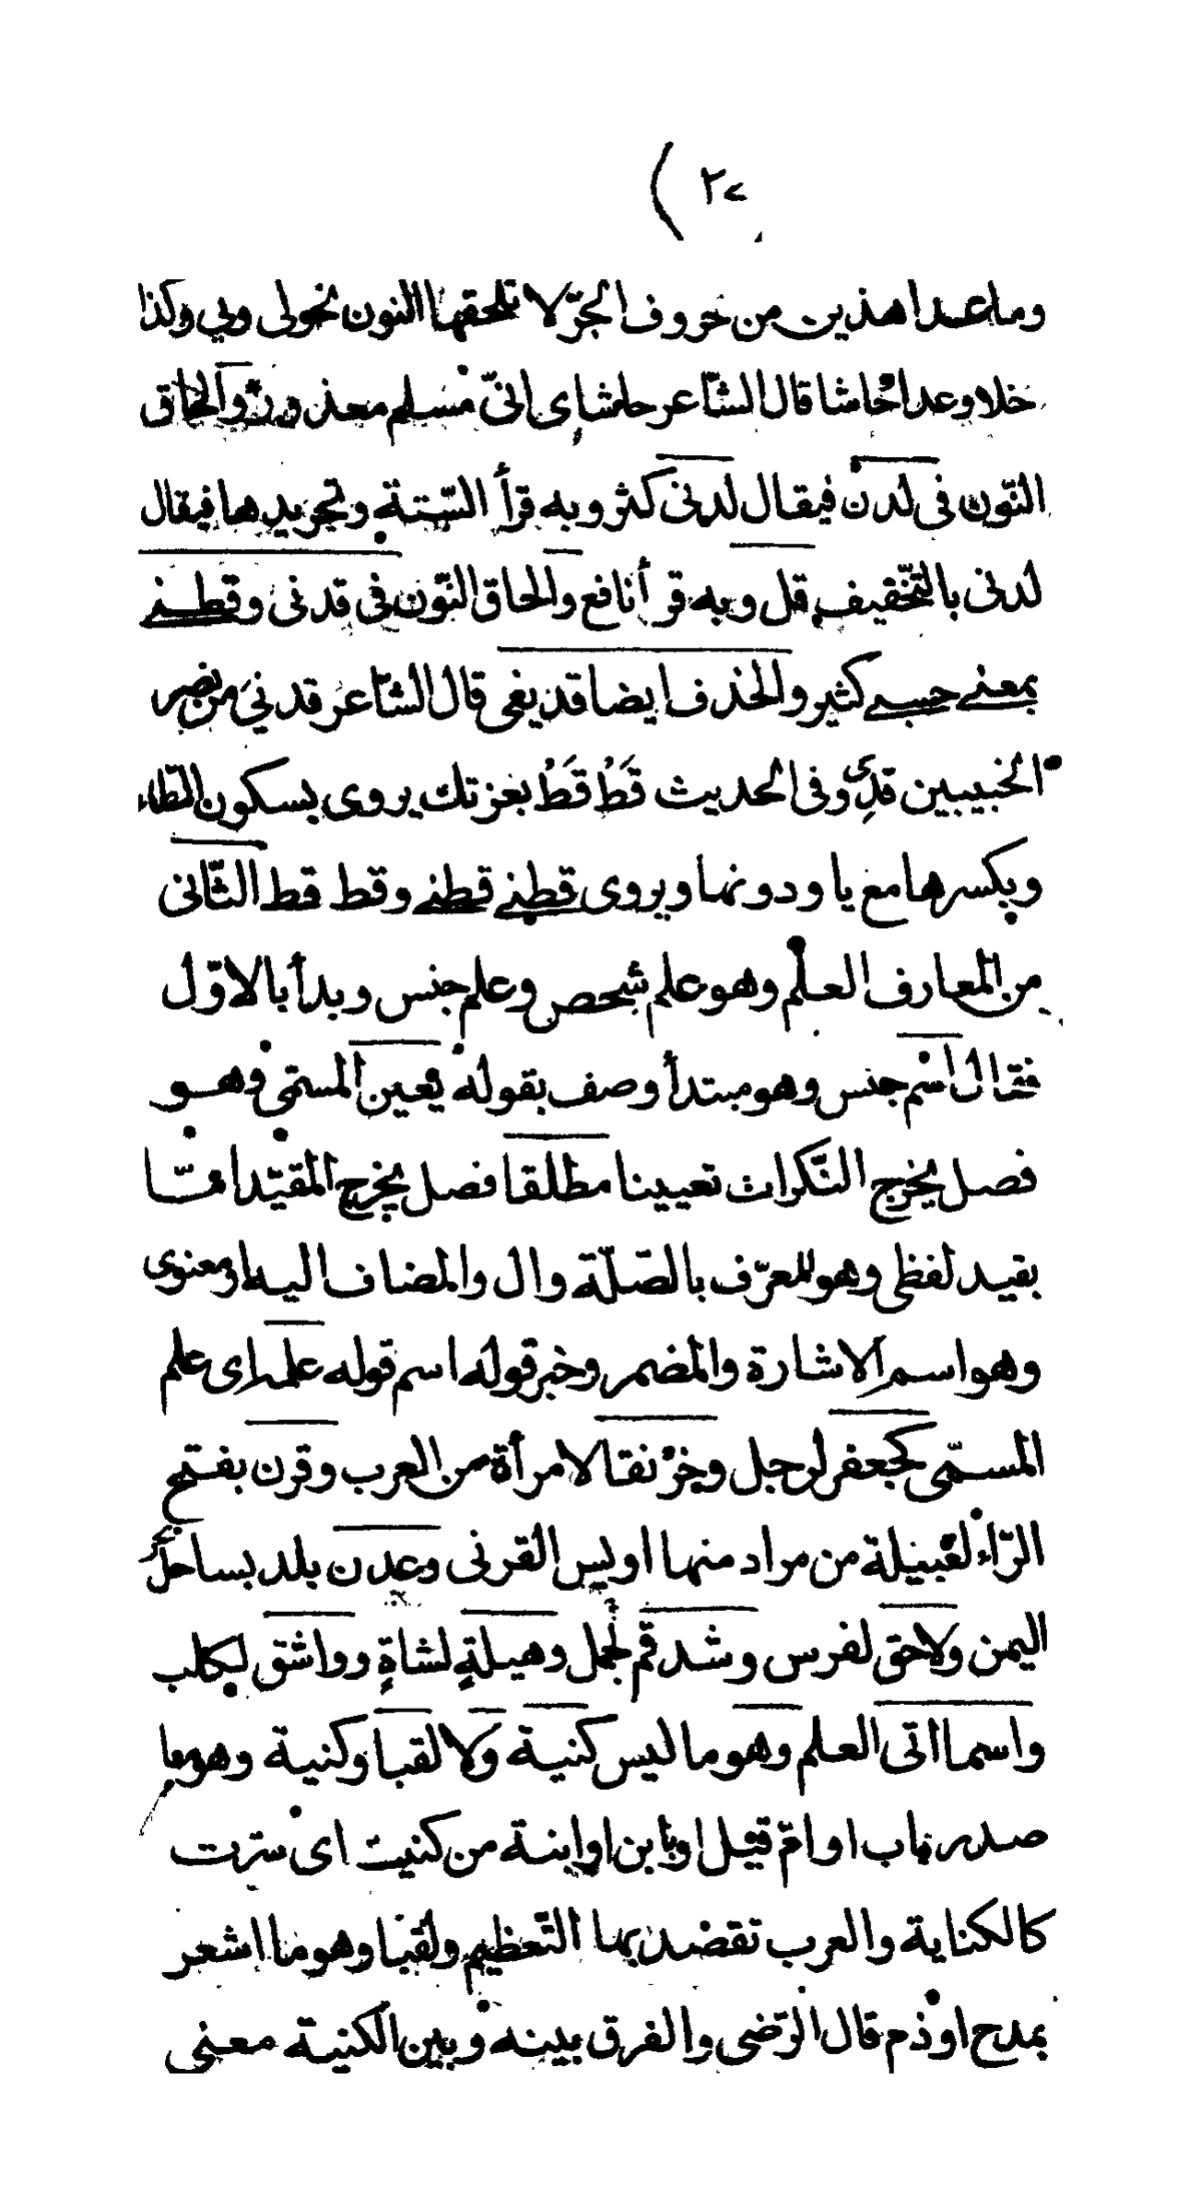 ٢٥ )
وما عدا هذين من حروف الجرّ لا تلحقها النون نحو لى وبي وكذا
خلا وعدا حاشا قال الشّاعر حاشاى انّى مسلم معذور وَالحاق
النّون فى لدن فيقال لدنى كثر وبه قرأ السّتة وتجريدها فيقال
لدنى بالتّخفيف قل وبه قرأ نافع والحاق النّون فى قدنى وقطنے
بمعنے حسبے كثير والحذف ايضا قد يفى قال الشّاعر قدنىَ من نصر
الخبيبين قدِى وفى الحديث قَطُ قَطُ بعزتك يروى بسكون الطّاء
وبكسرها مع يا ودونها ويروى قطنے قطنے وقط قط الثّانى
من المعارف العلم وهو علم شخص وعلم جنس وبدأ بالاوّل
فقال اسم جنس وهو مبتدأ وصف بقوله يعين المسمّى وهو
فصل يخرج النّكرات تعيينا مطلقا فصل يخرج المقيّد امّا
بقيد لفظى وهو المعرّف بالصّلّة وال والمضاف اليه او معنوى
وهو اسم الاشارة والمضمر وخبر قوله اسم قوله علمه اى علم
المسمّى كجعفر لرجل وخرْنقا لامرأة من العرب وقرن بفتح
الرّاء لقبيلة من مراد منها اويس القرنى وعدن بلد بساحل
اليمن ولاحق لفرس وشدقم لجمل وهيلةٍ لشاةٍ وواشق لكلب
واسما اتى العلم وهو ما ليس كنية وَلا لقبا وكنية وهو ما
صدر باب او امّ قيل او بابن او ابنة من كنيت اى سترت
كالكناية والعرب تقصد بها التّعظيم ولقبا وهو ما اشعر
بمدح او ذم قال الرّضى والفرق بينه وبين الكنية معنى